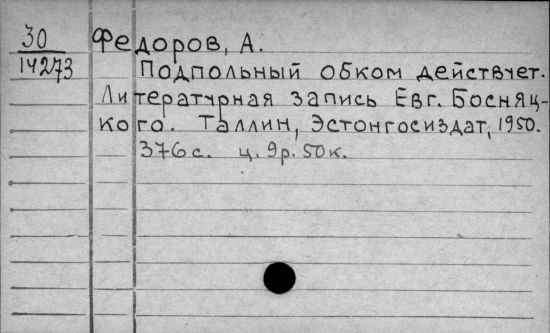 30 Федоров, А.
14273 Подпольный обком действует.
Литературная запись Евг. Босняц-
кого. Таллин, Эстонгосиздат, 1950.
376 с. ц. 9 р. 50 к.